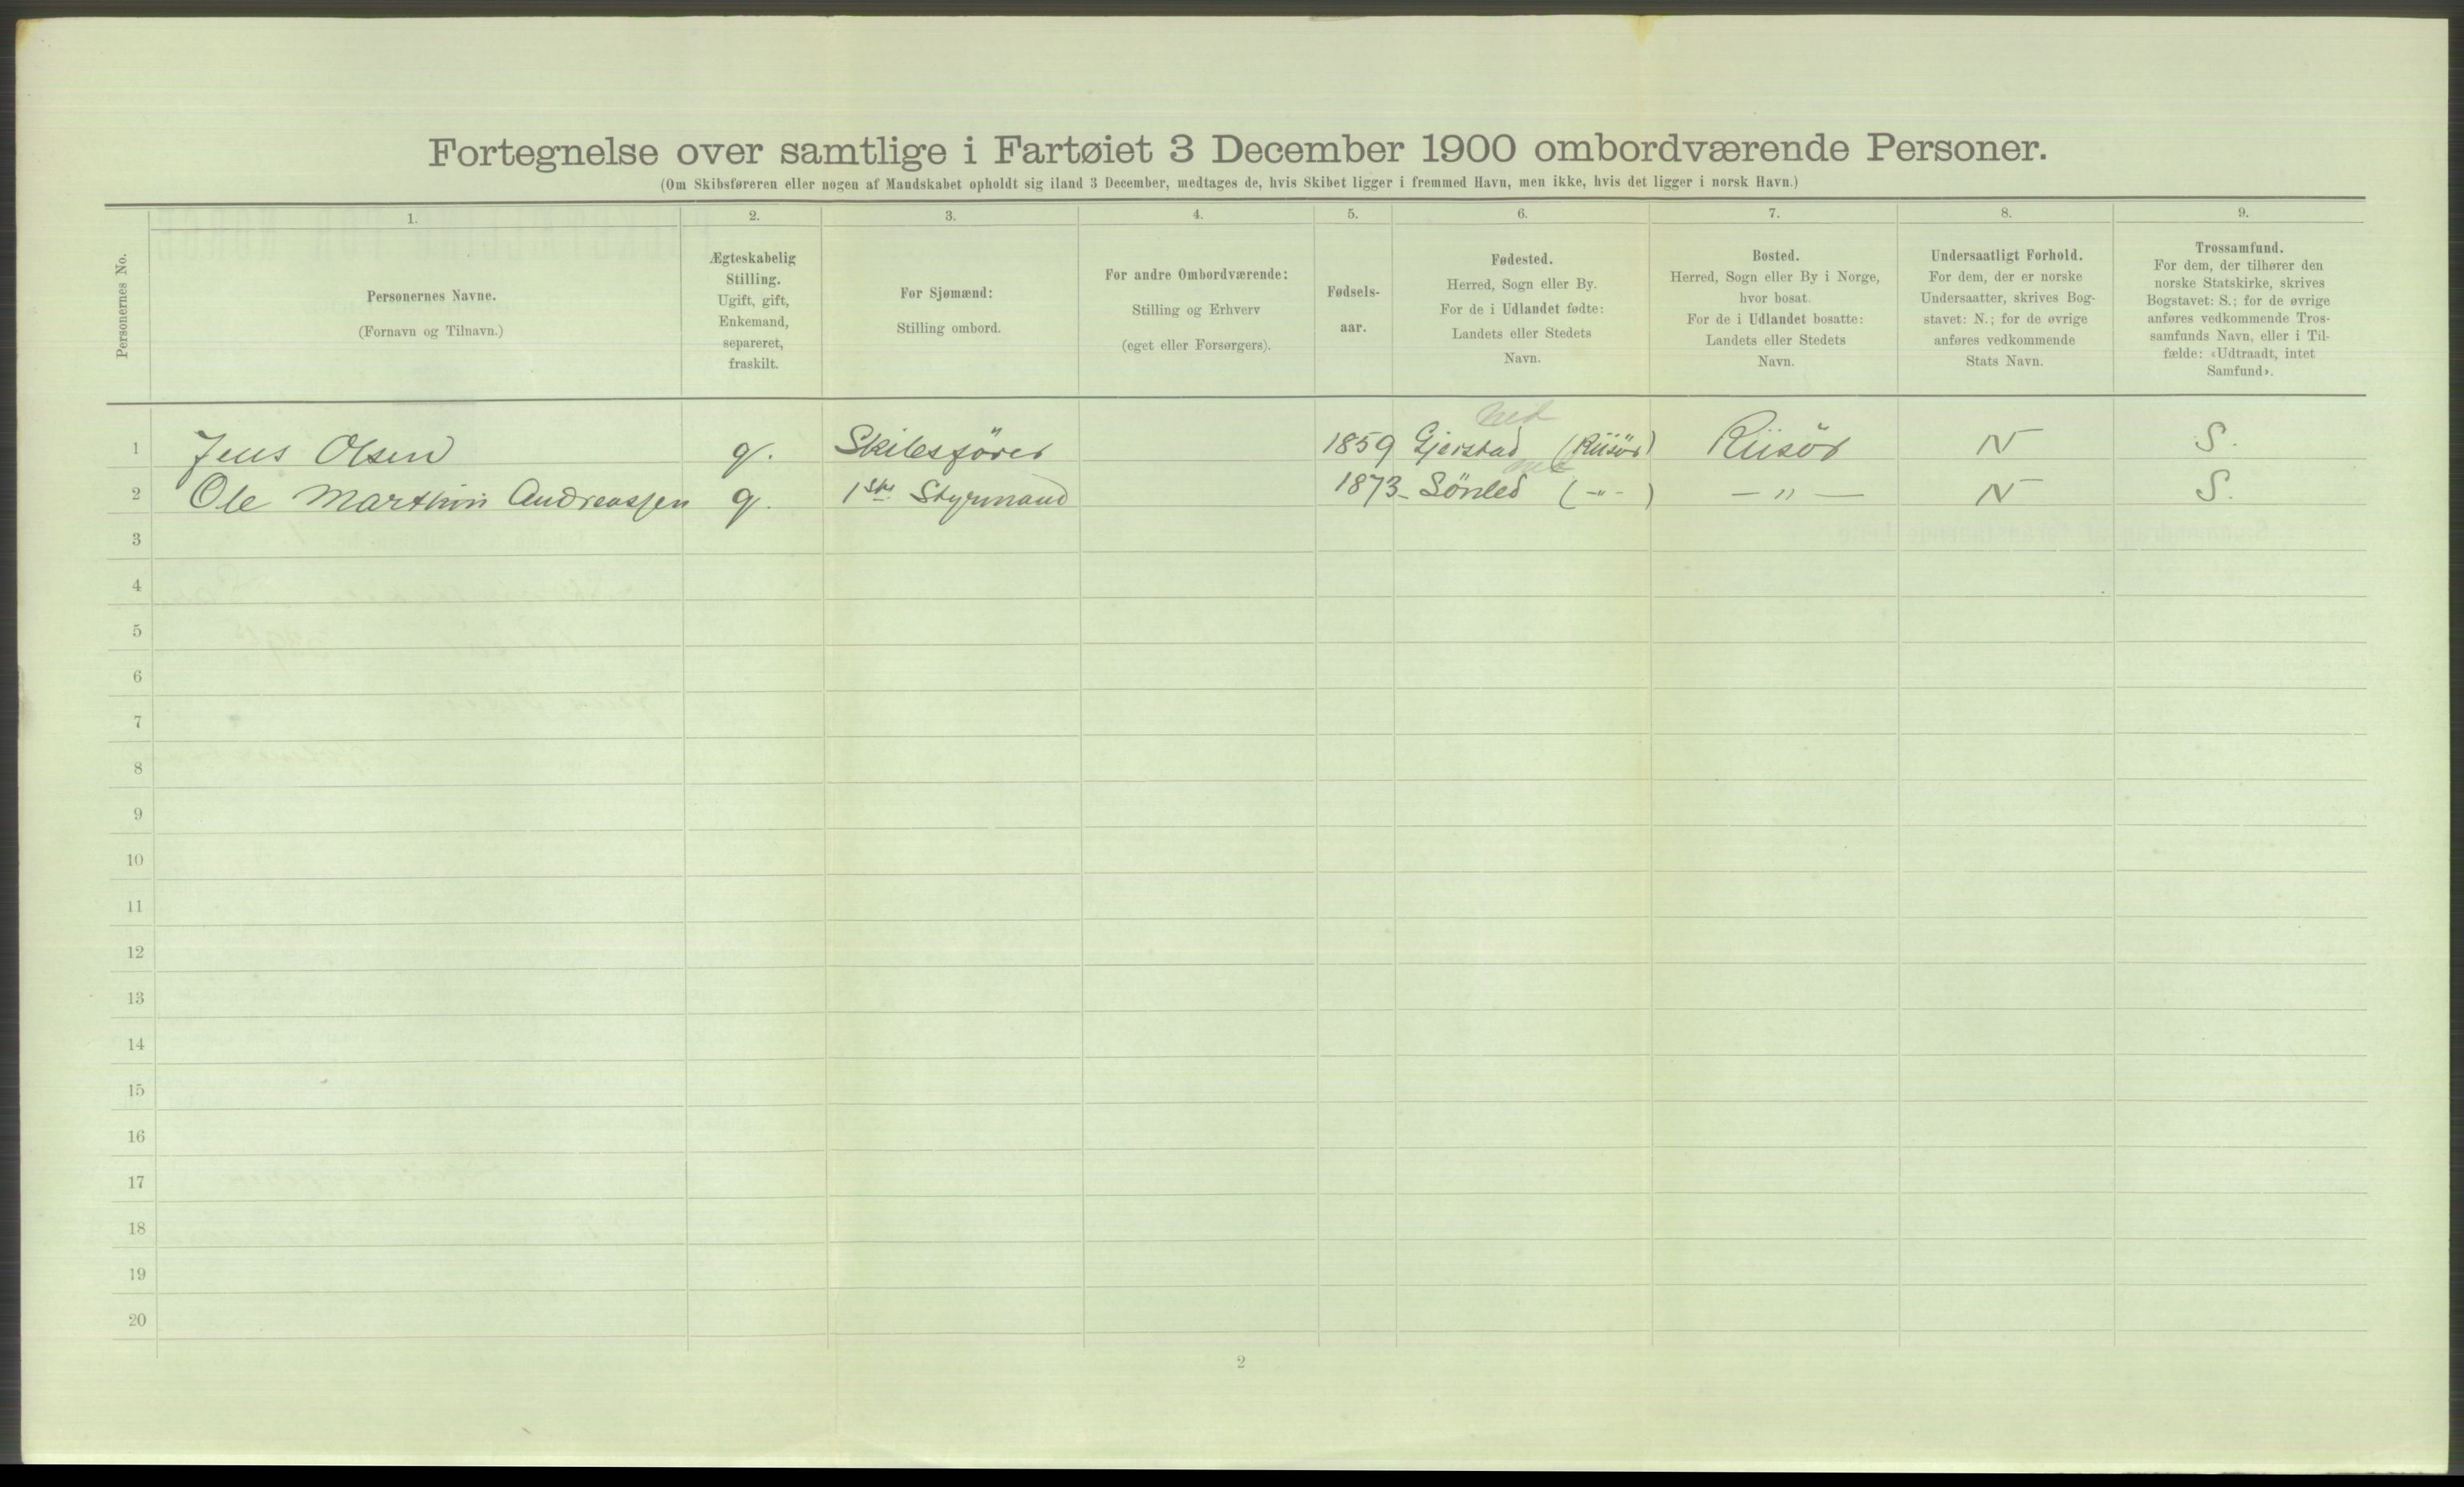 Fortegnelse over samtlige i Fartøiet 3 December 1900 ombordværende Personer.
(Om Skibsføreren eller nogen af Mandskabet opholdt sig iland 3 December, medtages de, hvis Skibet ligger i fremmed Havn, men ikke, hvis det ligger i norsk Havn.)
Personernes No.
1.
Personernes Navne.
(Fornavn og Tilnavn.)
2.
Ægteskabelig
Stilling.
Ugift, gift,
Enkemand,
separeret,
fraskilt.
3.
For Sjømænd:
Stilling ombord.
4.
For andre Ombordværende:
Stilling og Erhverv
(eget eller Forsørgers).
5.
Fødsels-
aar.
6.
Fødested.
Herred, Sogn eller By.
For de i Udlandet fødte:
Landets eller Stedets
Navn.
7.
Bosted.
Herred, Sogn eller By i Norge,
hvor bosat.
For de i Udlandet bosatte:
Landets eller Stedets
Navn.
8.
Undersaatligt Forhold.
For dem, der er norske
Undersaatter, skrives Bog-
stavet: N.; for de øvrige
anføres vedkommende
Stats Navn.
9.
Trossamfund.
For dem, der tilhører den
norske Statskirke, skrives
Bogstavet: S.; for de øvrige
anføres vedkommende Tros-
samfunds Navn, eller i Til-
fælde: «Udtraadt, intet
Samfund».
1 Jens Olsen g. Skibsförer 1859 Gjerstad (Riisör) Riisör N S.
2 Ole Marthin Andreassen g. 1ste Styrmand 1873 - Sönled ( -"- ) - " - N S.
3
4
5
6
7
8
9
10
11
12
13
14
15
16
17
18
19
20
2